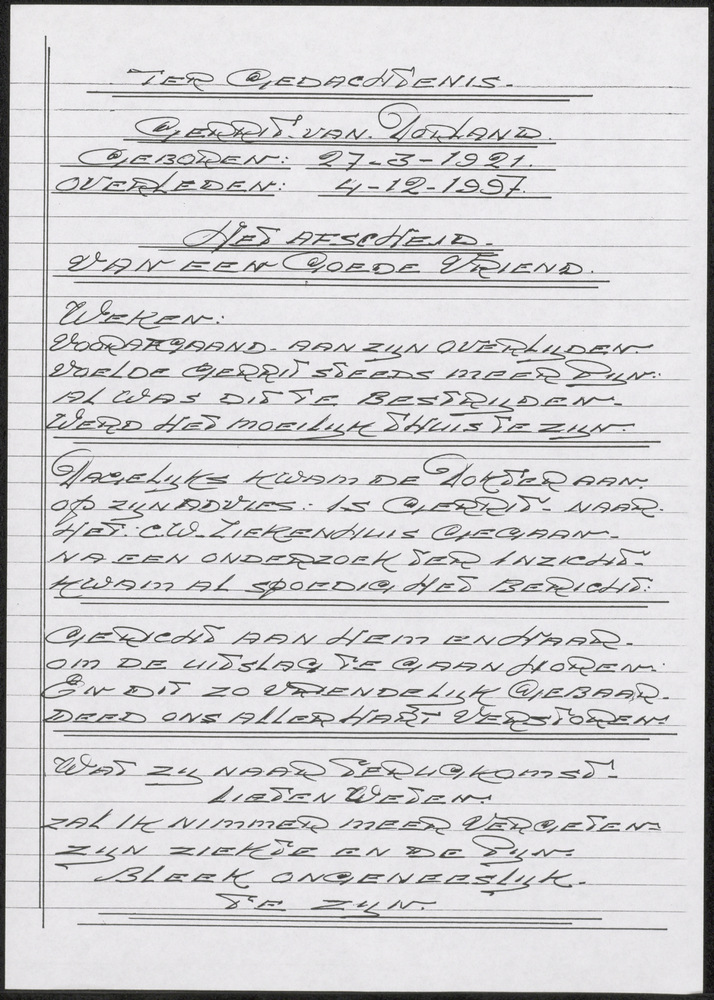 TER GEDACHTENIS.
GERRIT. VAN. VORLAND.
GEBOREN: 27-3-1921.
OVERLEDEN: 4-12-1997.
HET AFSCHEID.
VAN EEN GOEDE VRIEND.
WEKEN:
VOORAFGAAND. AAN ZIJN OVERLIJDEN.
VOELDE GERRIT STEEDS MEER PIJN:
AL WAS DIT TE BESTRIJDEN.
WERD HET MOEILIJK THUIS TE ZIJN.
DAGELIJKS KWAM DE DOKTER AAN.
OP ZIJN ADVIES: IS GERRIT. NAAR.
HET: C.W. ZIEKENHUIS GEGAAN.
NA EEN ONDERZOEK TER INZICHT.
KWAM AL SPOEDIG HET BERICHT:
GERICHT AAN HEM EN HAAR.
OM DE UITSLAG TE GAAN HOREN:
EN DIT ZO VRIENDELIJK GEBAAR.
DEED ONS ALLER HART VERSTOREN:
WAT ZIJ NAAR TERUGKOMST.
LIETEN WETEN:
ZAL IK NIMMER MEER VERGETEN:
ZIJN ZIEKTE EN DE PIJN.
BLEEK ONGENEESLIJK.
TE ZIJN.